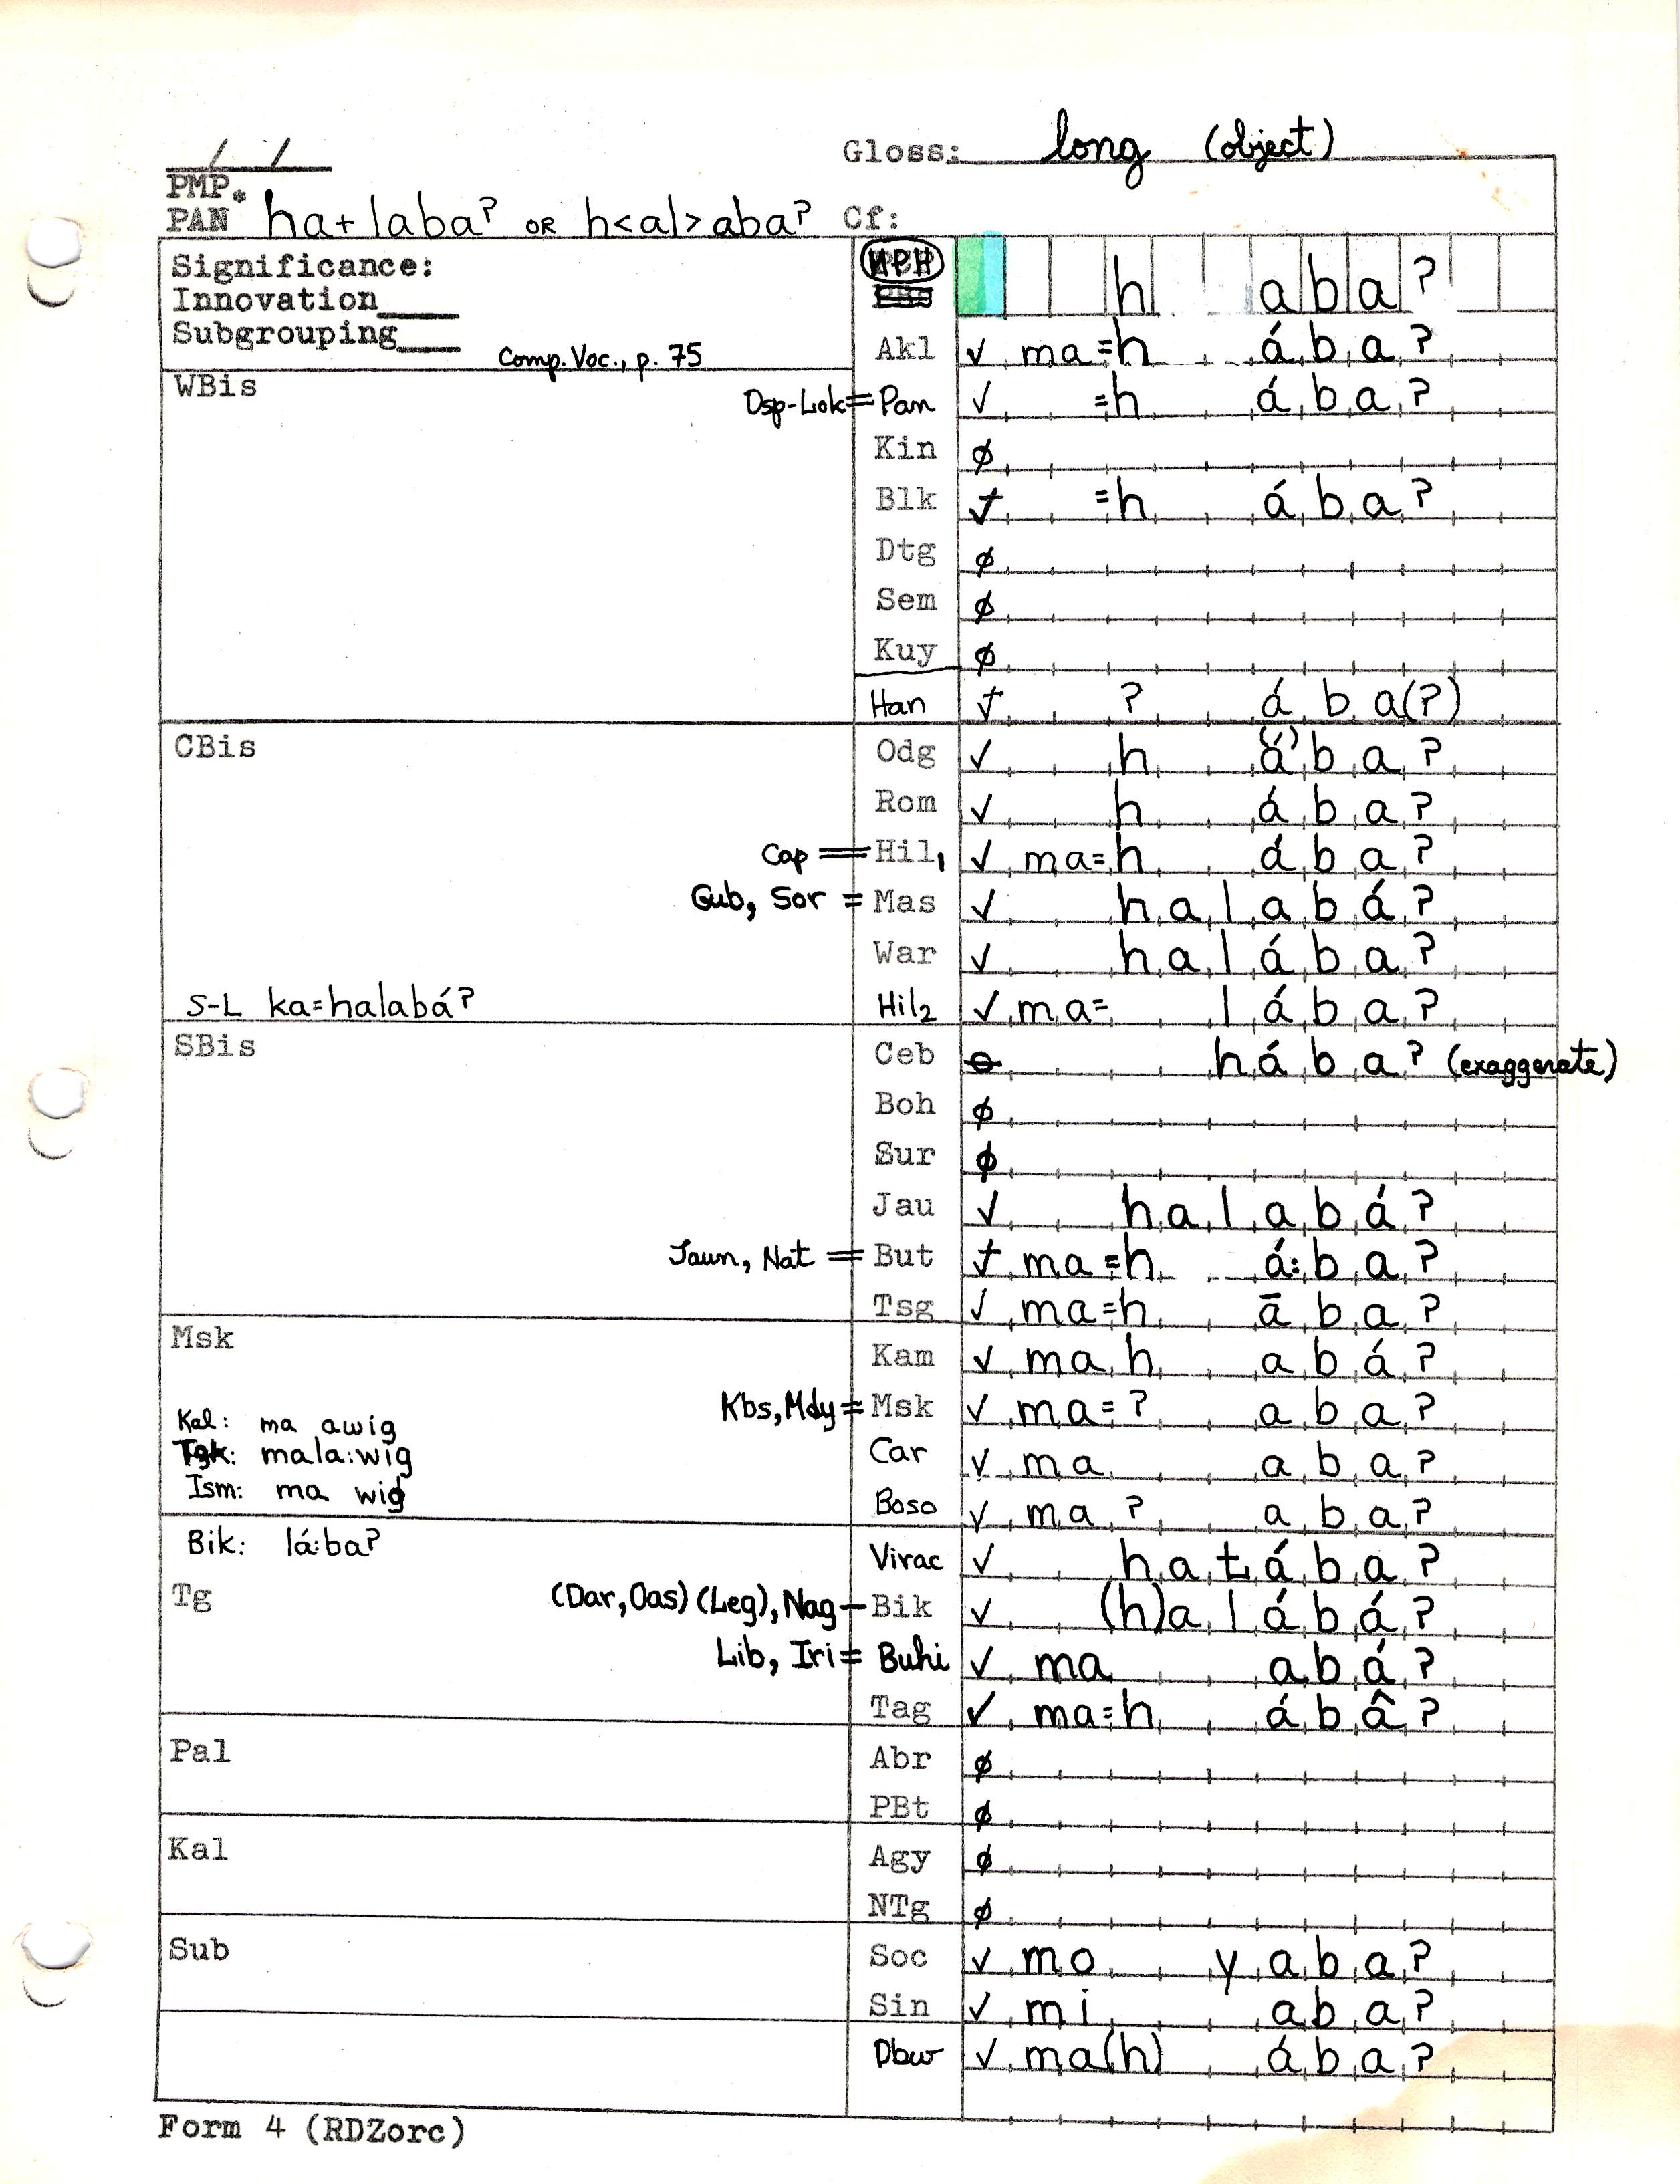 / / Gloss: long (object)
PMP *
PAN ha + laba? OR h<al>aba? Cf:
Significance: MPH h aba?
Innovation
Subgrouping Comp. Voc., p. 75 Akl ✓ ma=h ába?
WBis Dsp-Lok = Pan ✓ =h ába?
Kin ø
Blk ✓ =h ába?
Dtg ø
Sem ø
Kuy ø
Han ✓ ? ába(?)
CBis Odg ✓ h á(´)ba?
Rom ✓ h ába?
Cap = Hil1 ✓ ma=h ába?
Gub, Sor = Mas ✓ halabá?
War ✓ halába?
S-L ka=halabá? Hil2 ✓ ma= lába?
SBis Ceb ɵ hába? (exaggerate)
Boh ø
Sur ø
Jau ✓ halabá?
Jaun, Nat = But ✓ ma=h á:ba?
Tsg ✓ ma=h āba?
Msk Kam ✓ mah abá?
Kbs, Mdy = Msk ✓ ma=? aba?
Kal: ma awig
Tgk: mala:wig Car ✓ ma aba?
Ism: ma wig Boso ✓ ma ? aba?
Bik: lá:ba? Virac ✓ hatába?
Tg (Dar, Oas) (Leg), Nag – Bik ✓ (h)alábá?
Lib, Iri = Buhi ✓ ma abá?
Tag ✓ ma=h ábâ?
Pal Abr ø
PBt ø
Kal Agy ø
NTg ø
Sub Soc ✓ mo yaba?
Sin ✓ mi aba?
Dbw ✓ ma(h) ába?
Form 4 (RDZorc)